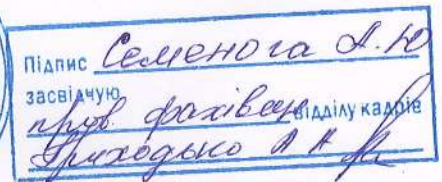 Підпис Семенога А.Ю
засвідчую
пров. фахівець відділу кадрів
Приходько А А